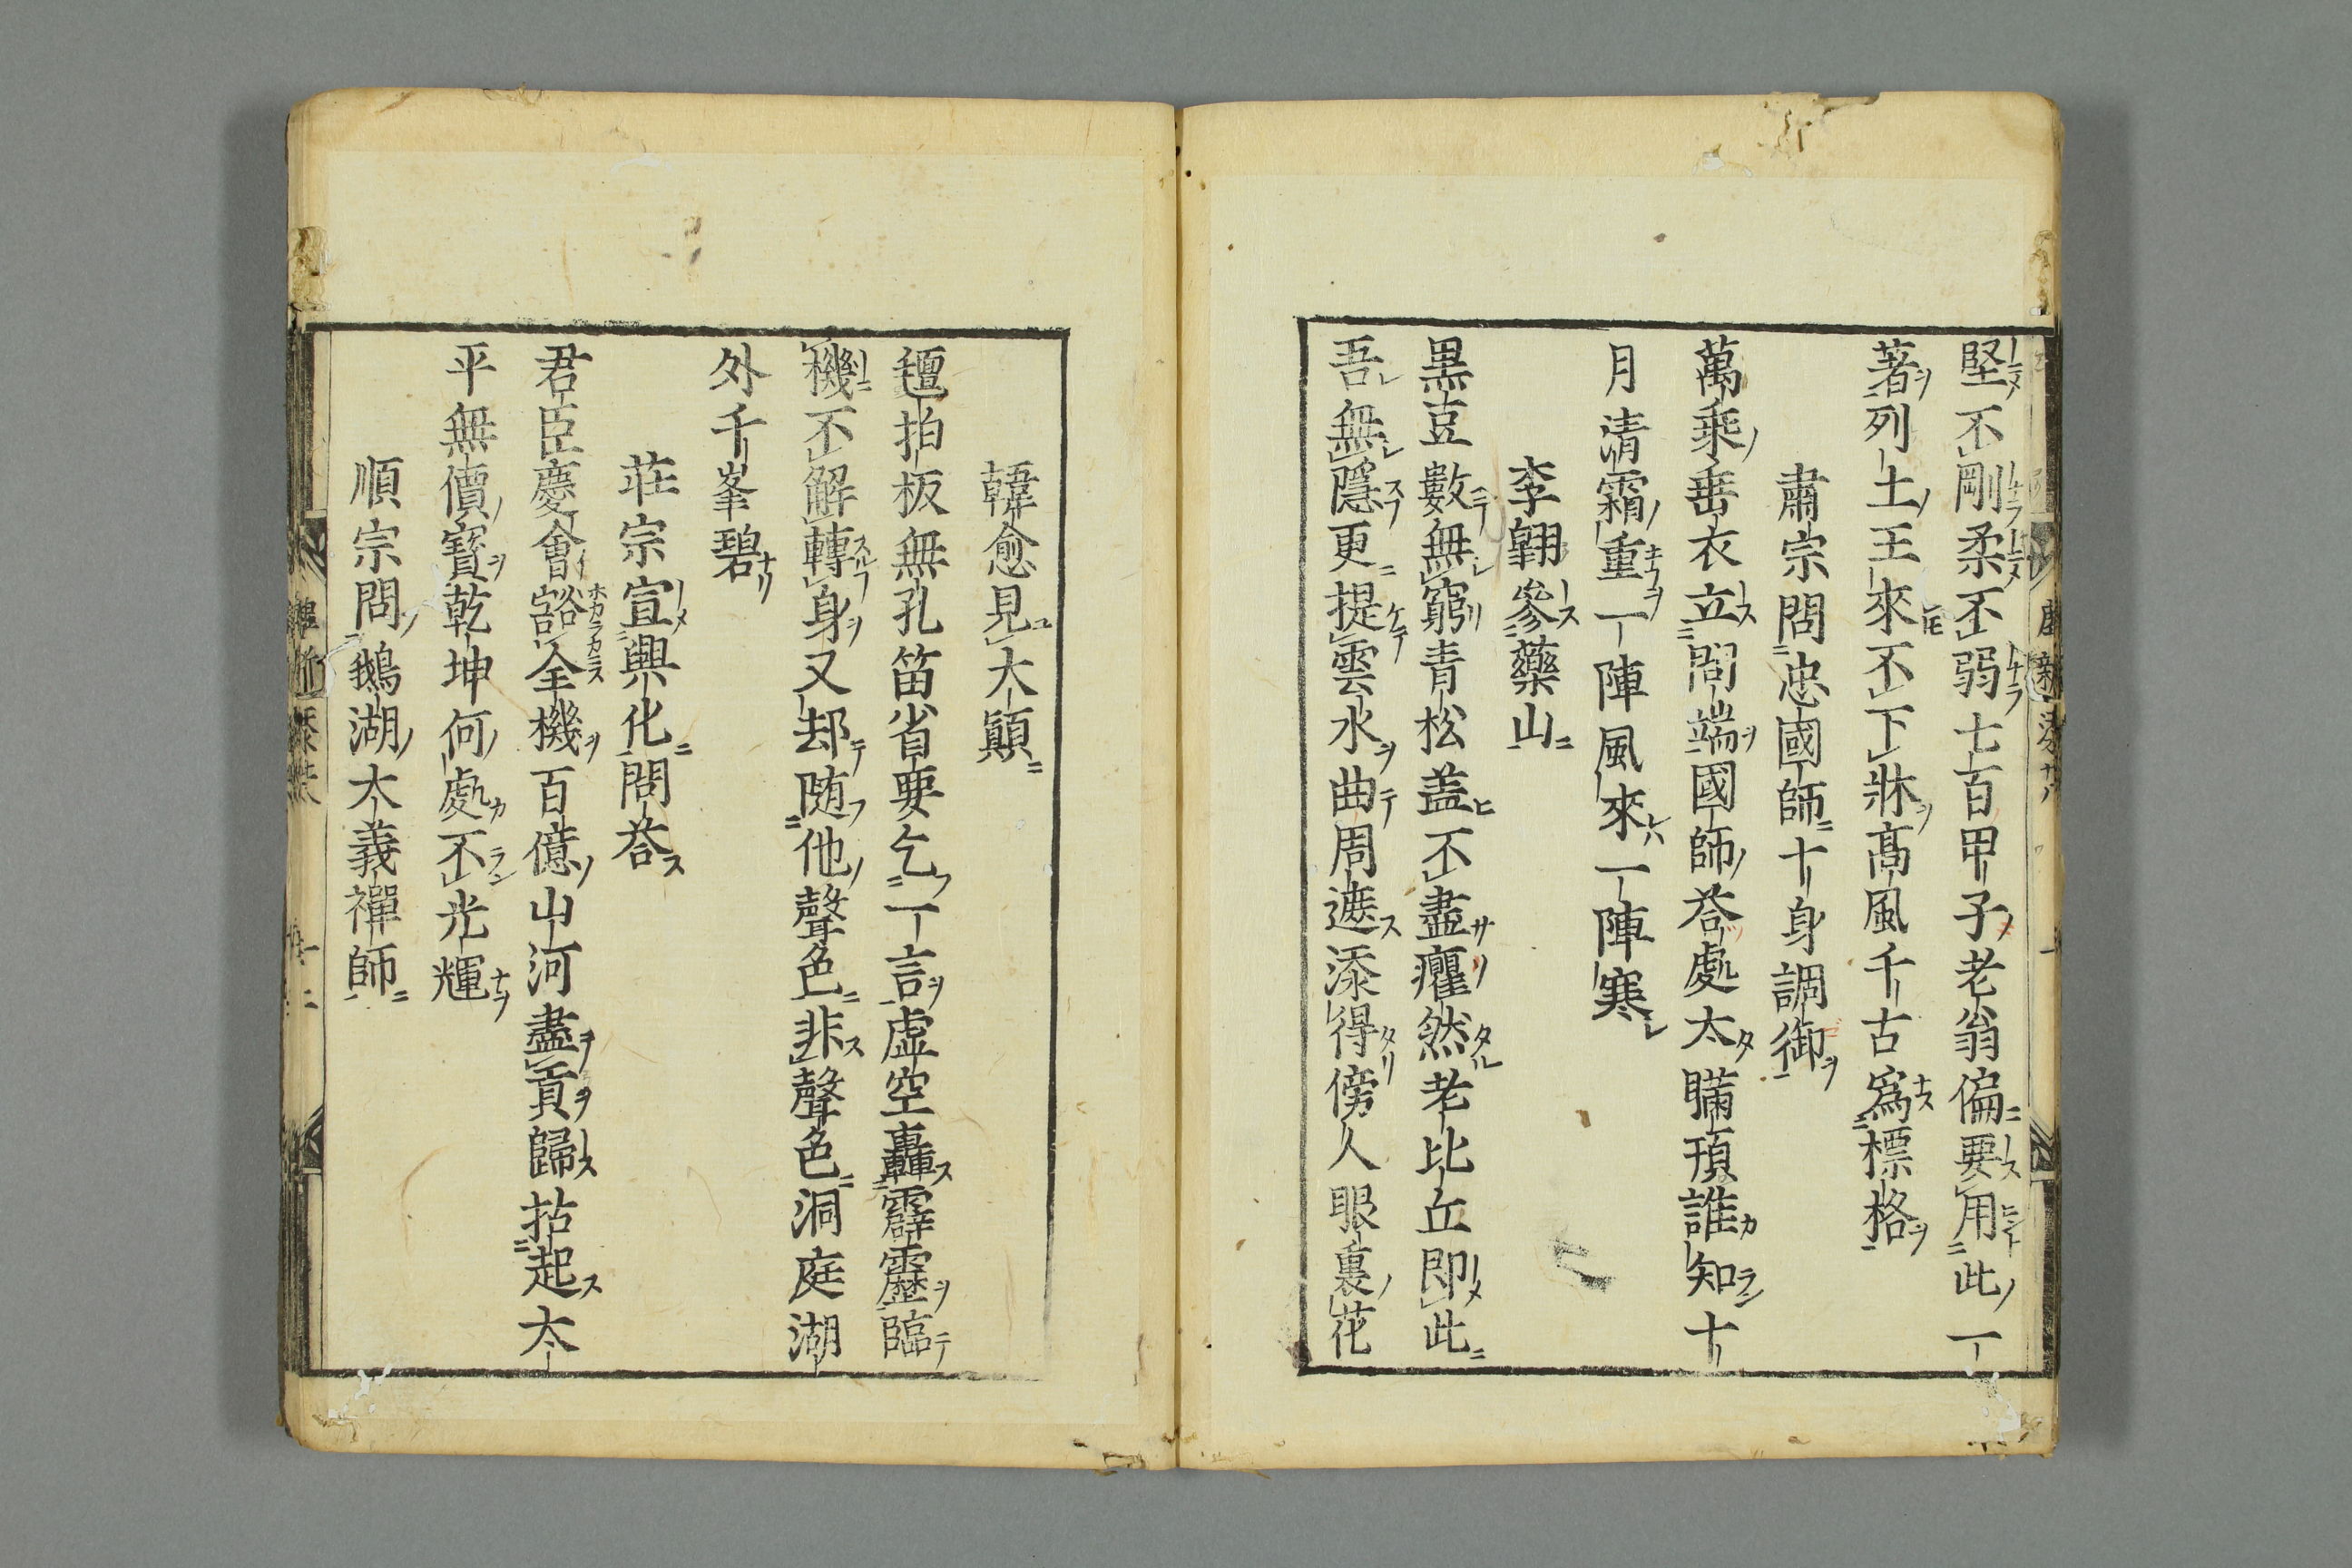 堅不剛柔不弱七百甲子老翁偏要用此一
著列土王來不下牀高風千古爲標格
肅宗問忠國師十身調御
萬乘垂衣立問端國師答處太瞞頇誰知十
月清霜重一陣風來一陣寒
李翺參藥山
黒豆數無窮青松盖不盡癯然老比丘即此
吾無隱更提雲水曲周遮添得傍人眼裏花
韓愈見大顚
氊拍板無孔笛省要乞一言虛空轟霹靂臨
機不解轉身又却随他聲色非聲色洞庭湖
外千峯碧
莊宗宣興化問答
君臣慶會豁全機百億山河盡貢歸拈起太
平無價寳乾坤何處不光輝
順宗問鵝湖大義禪師